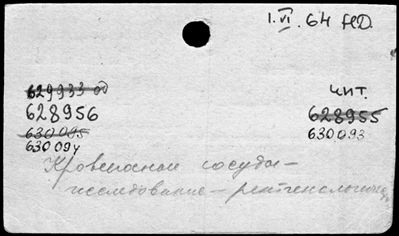 1.VI.64 Н.D.
629933 од
чит.
628956
628955
630095
630093
630094
Кровеносные сосуды –
исследование – рентгенологич.